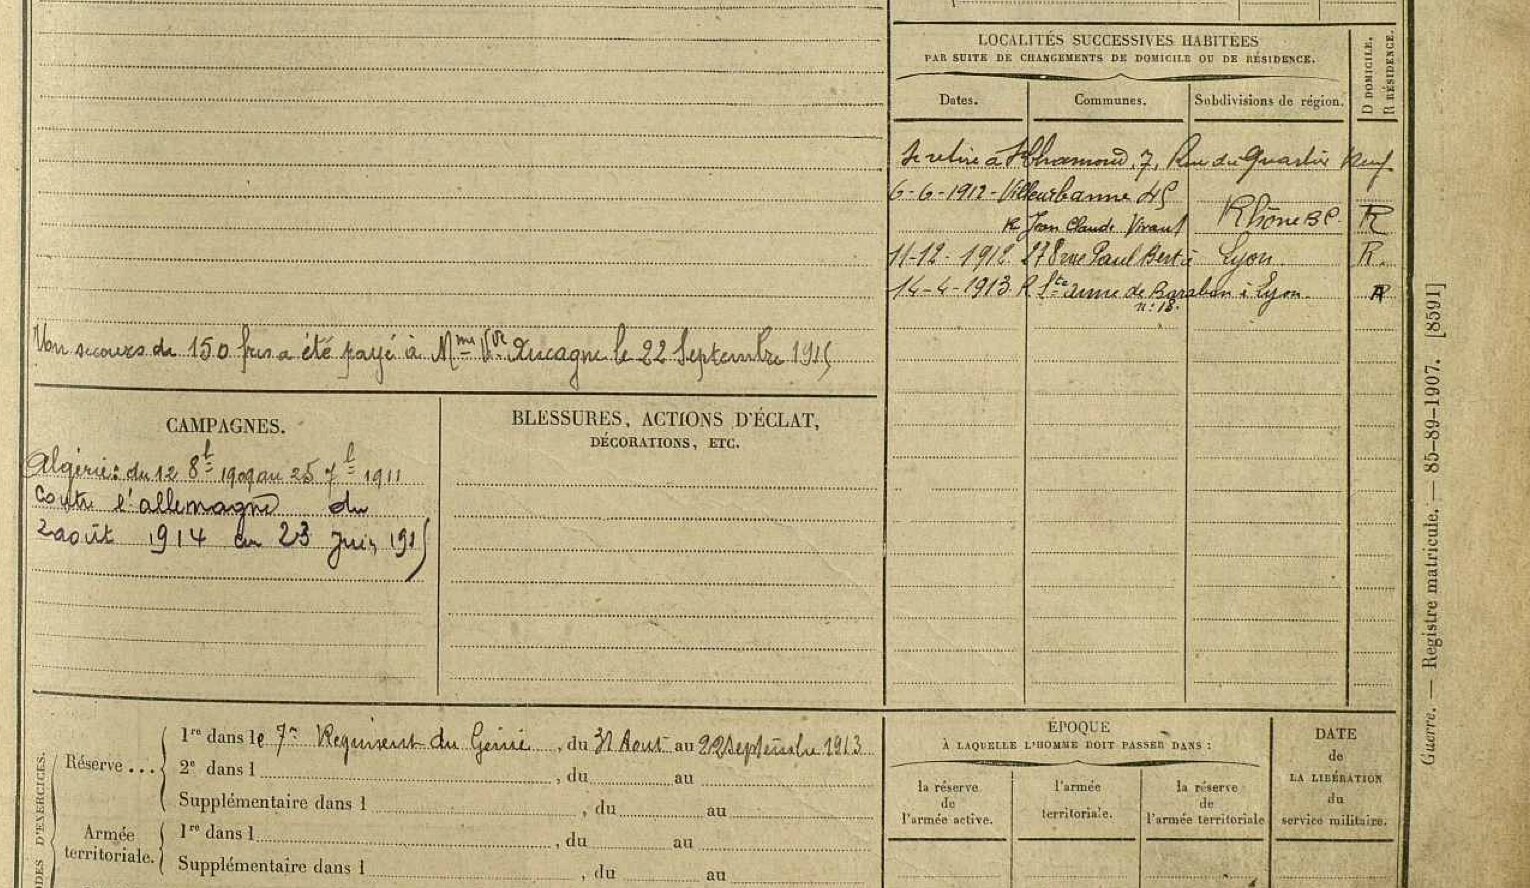 LOCALITÉS SUCCESSIVES HABITÉES
PAR SUITE DE CHANGEMENTS DE DOMICILE OU DE RÉSIDENCE.
D DOMICILE.
R RÉSIDENCE.
Dates.
Communes.
Subdivisions de région.
Se retire à St Chamond, 7, Rue du Quartier Neuf
6-6-1912 - Villeurbanne 45
R Jean Claude Vivant Rhône R
11-12-1912 278 rue Paul Bert à Lyon. R.
14-4-1913 R Ste anne de Baraban à Lyon. R
n: 18.
Un secours de 150 frcs a été payé à Mme Vve Aucagne le 22 Septembre 1915
CAMPAGNES.
Algérie: du 12 8bre 1909 au 25 7bre 1911
contre l'allemagne du
2 août 1914 au 23 Juin 1915
BLESSURES, ACTIONS D'ÉCLAT,
DÉCORATIONS, ETC.
Guerre. — Registre matricule. — 85-89-1907. [8591]
D'EXERCICES.
Réserve ...
1re dans le 7e Régiment du Génie, du 31 Aout au 22 Septembre 1913
2e dans l , du au
Supplémentaire dans l , du au
Armée
territoriale.
1re dans l , du au
Supplémentaire dans l , du au
ÉPOQUE
À LAQUELLE L'HOMME DOIT PASSER DANS :
la réserve
de
l'armée active.
l'armée
territoriale.
la réserve
de
l'armée territoriale
DATE
de
LA LIBÉRATION
du
service militaire.